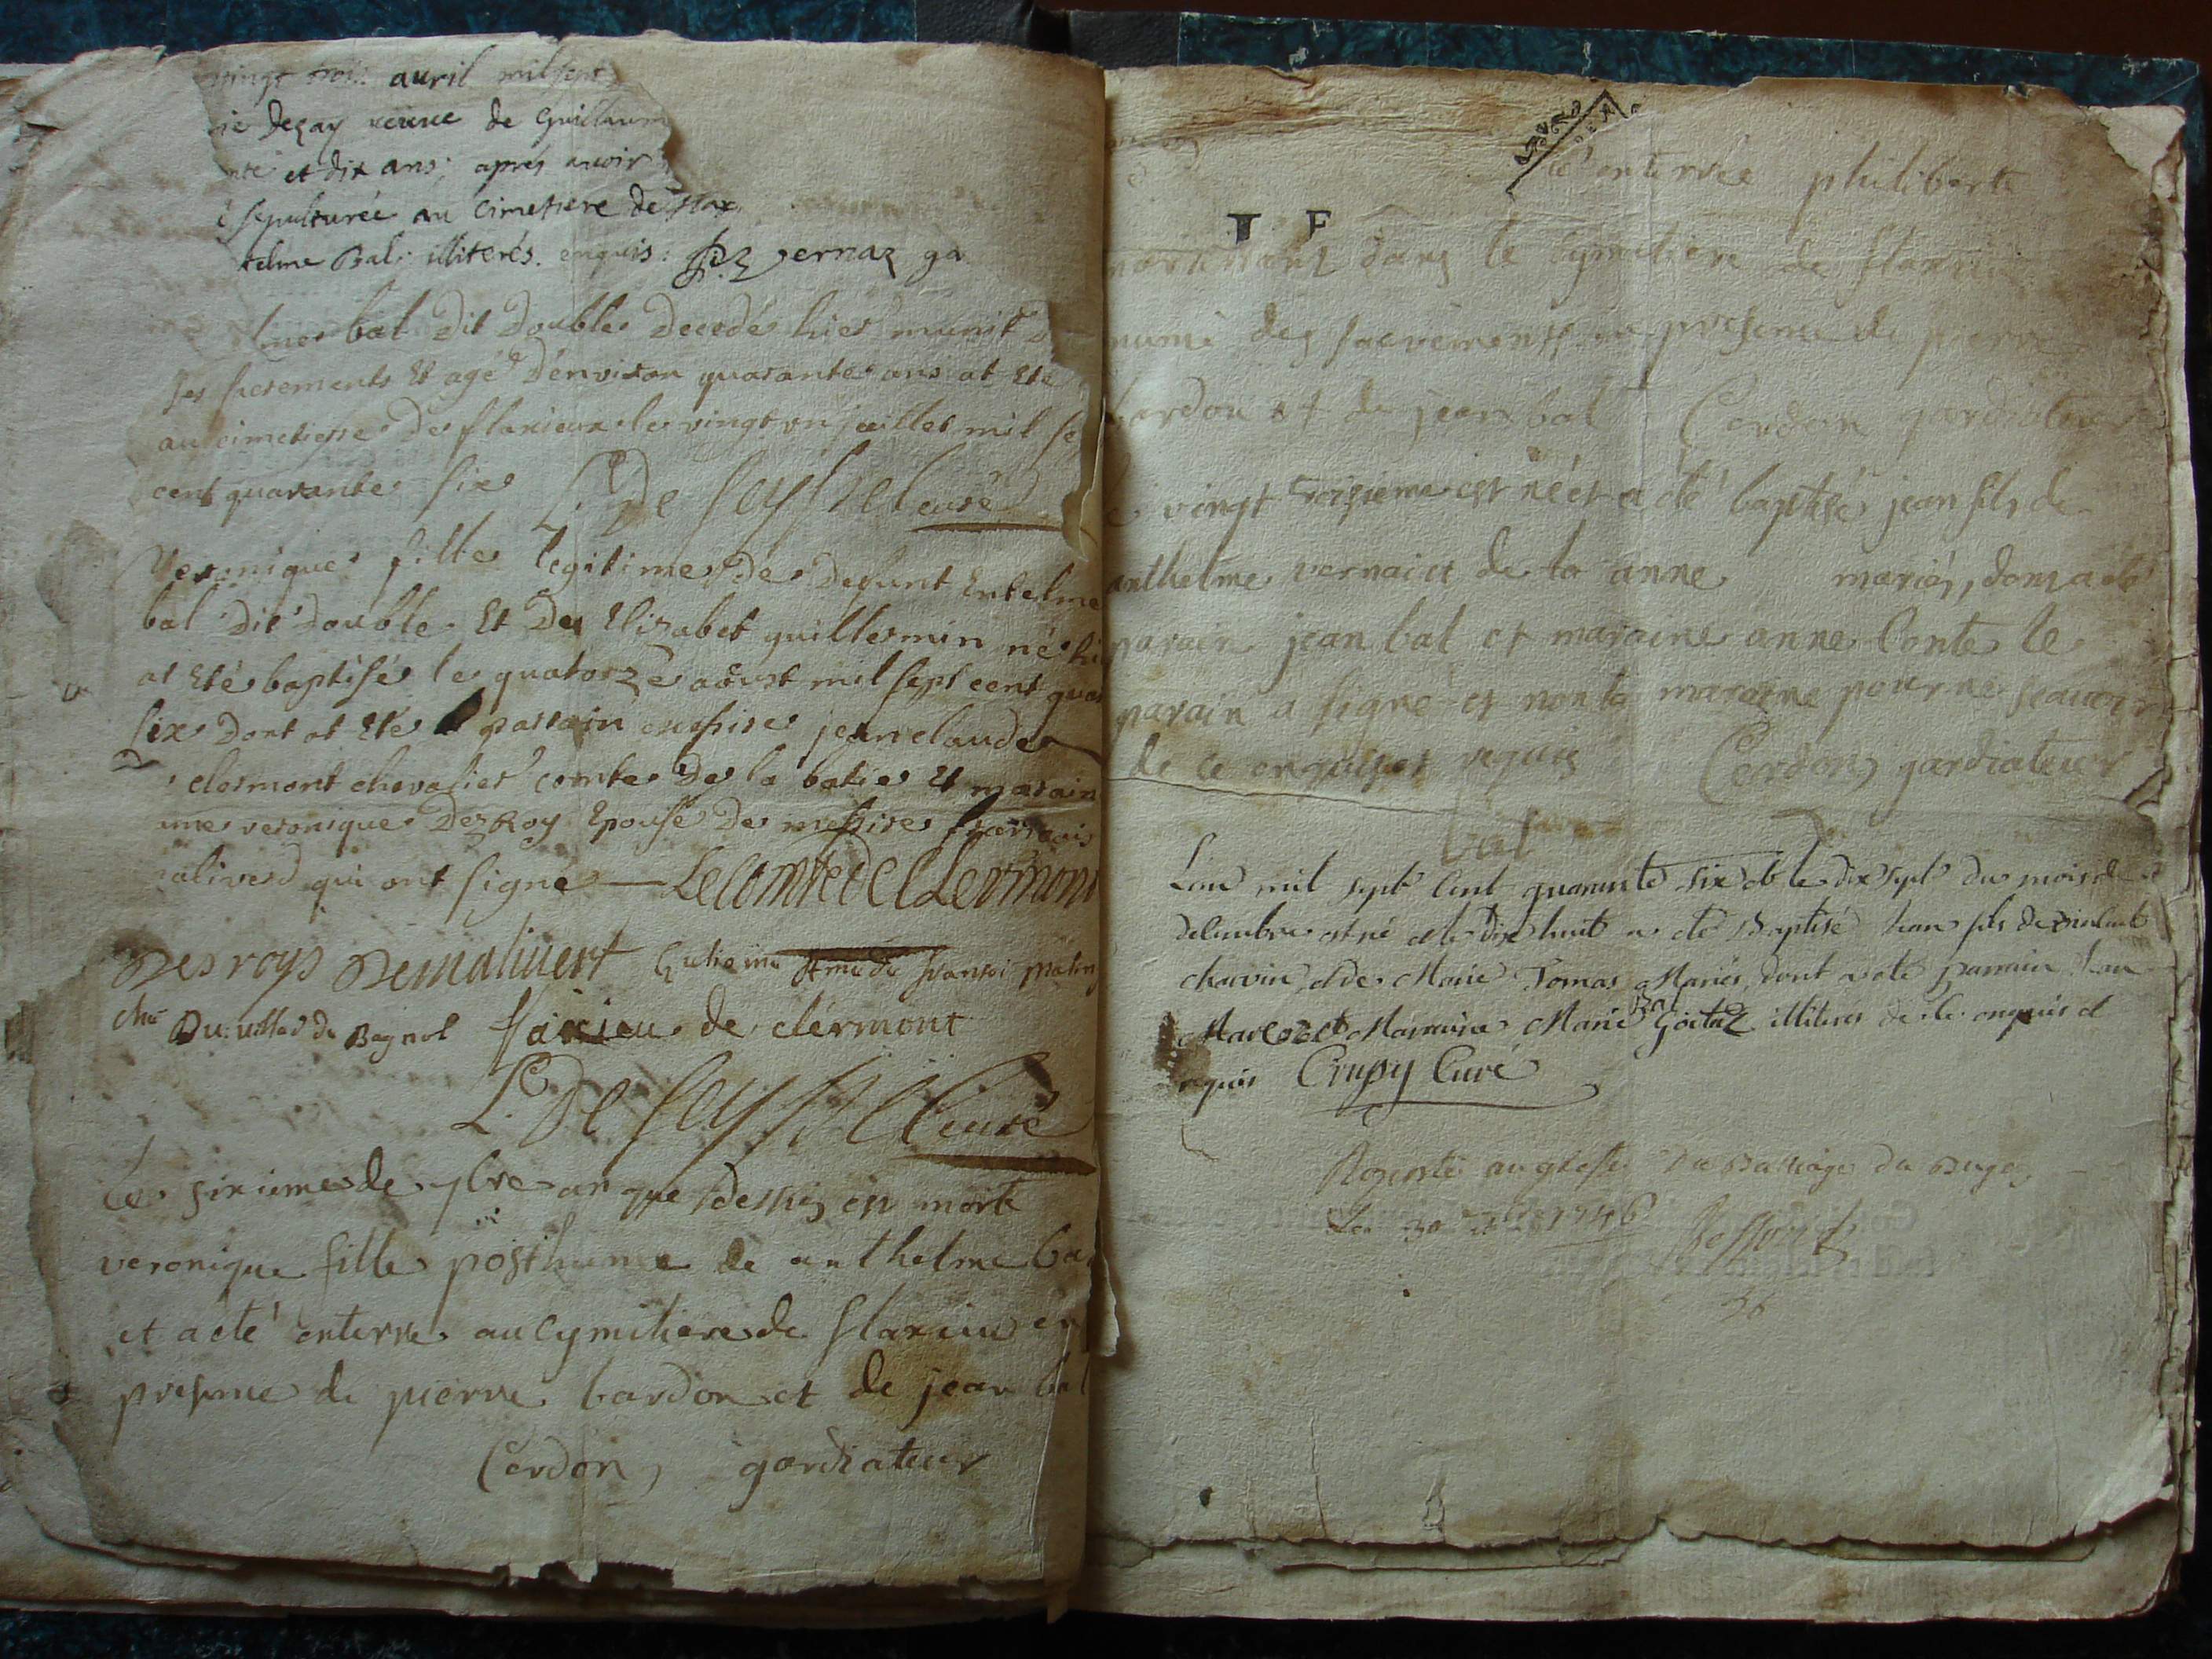 vingt trois auril mil sept
ie Dezay veuve de Guillaum
nte et dix ans; aprés avoir
é sepulturée au Cimetiere de flax
telme Bal. illiterés. enquis: vernaz ga
lme bal dit Double Decedé hier munit
ses sacrements Et agé D'environ quarante ans at Eté
au cimetiere De flaxieux le vingt un juillet mil se
cent quarante six L. De Seyssel curé
Veronique fille legitime De Defunt Entelme
bal Dit Double Et De Elizabet guillermin né hi
at Eté baptisée le quatorze aoust mil sept cent qua
six Dont at Eté parrain messire jean claude
clermont chevalier comte De la batie Et marain
me veronique Dezroy Epouse De messire francois
malivert qui ont signe — Le Comte de Clermont
Desroys Demalivert francoi
che Du Bagnol flaxieu de clermont
L. De Seyssel curé
Le sixieme de 7bre an que dessus est morte
veronique fille posthume de anthelme ba
et a eté enterre au cymitiere de flaxieu en
presence de pierre bardon et de jean bal
Cerdon, gardiateur
été enterrée philiberte
dans le cymitiere de flaxieu
munie des sacrements en presence de pierre
bardon et de jean bal Cerdon gardiateur
le vingt troisieme est né et a été baptisé jean fils de
anthelme vernai et de la anne mariés, dont a eté
parain jean bal et maraine anne Conte le
parain a signé et non la maraine pour ne scauoir
de ce enquises requis Cerdon, gardiateur
bal
L'an mil sept Cent quarante six et le dix sept du mois de
decembre est né et le dix huit a eté Baptisé Jean fils de
chauvin et de Marie Tomas Mariés, dont a eté parrain Jean
et Marraine Marie Goitaz illiterés de ce enquis et
requis Crusy Curé
au greffe Du Bailliage du Bugey
Le 30 1746